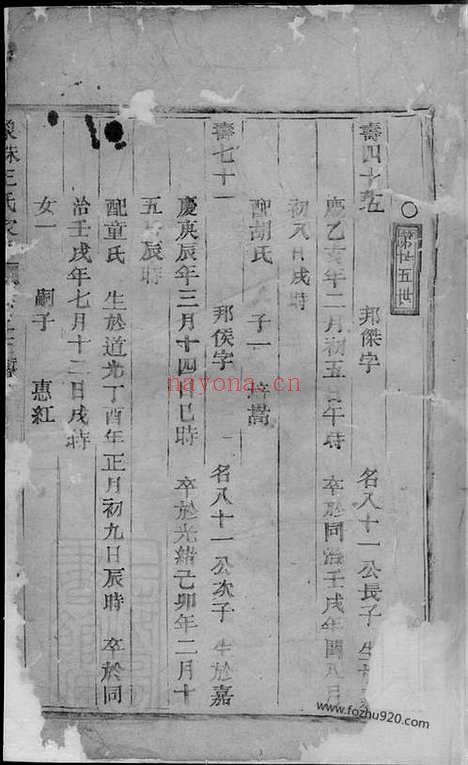 第廿五世
壽四十五 邦傑字 名八十一公長子 生
慶乙亥年二月初五日午時 卒於同治壬戌年閏八月
初八日戌時
配胡氏 子一
壽七十一 邦侯字 名八十一公次子 生於嘉
慶庚辰年三月十四日巳時 卒於光緒己卯年二月十
五日辰時
配童氏 生於道光丁酉年正月初九日辰時 卒於同
治壬戌年七月十二日戌時
女一 嗣子 惠紅
王氏
nayona.cn
www.fozhu920.com